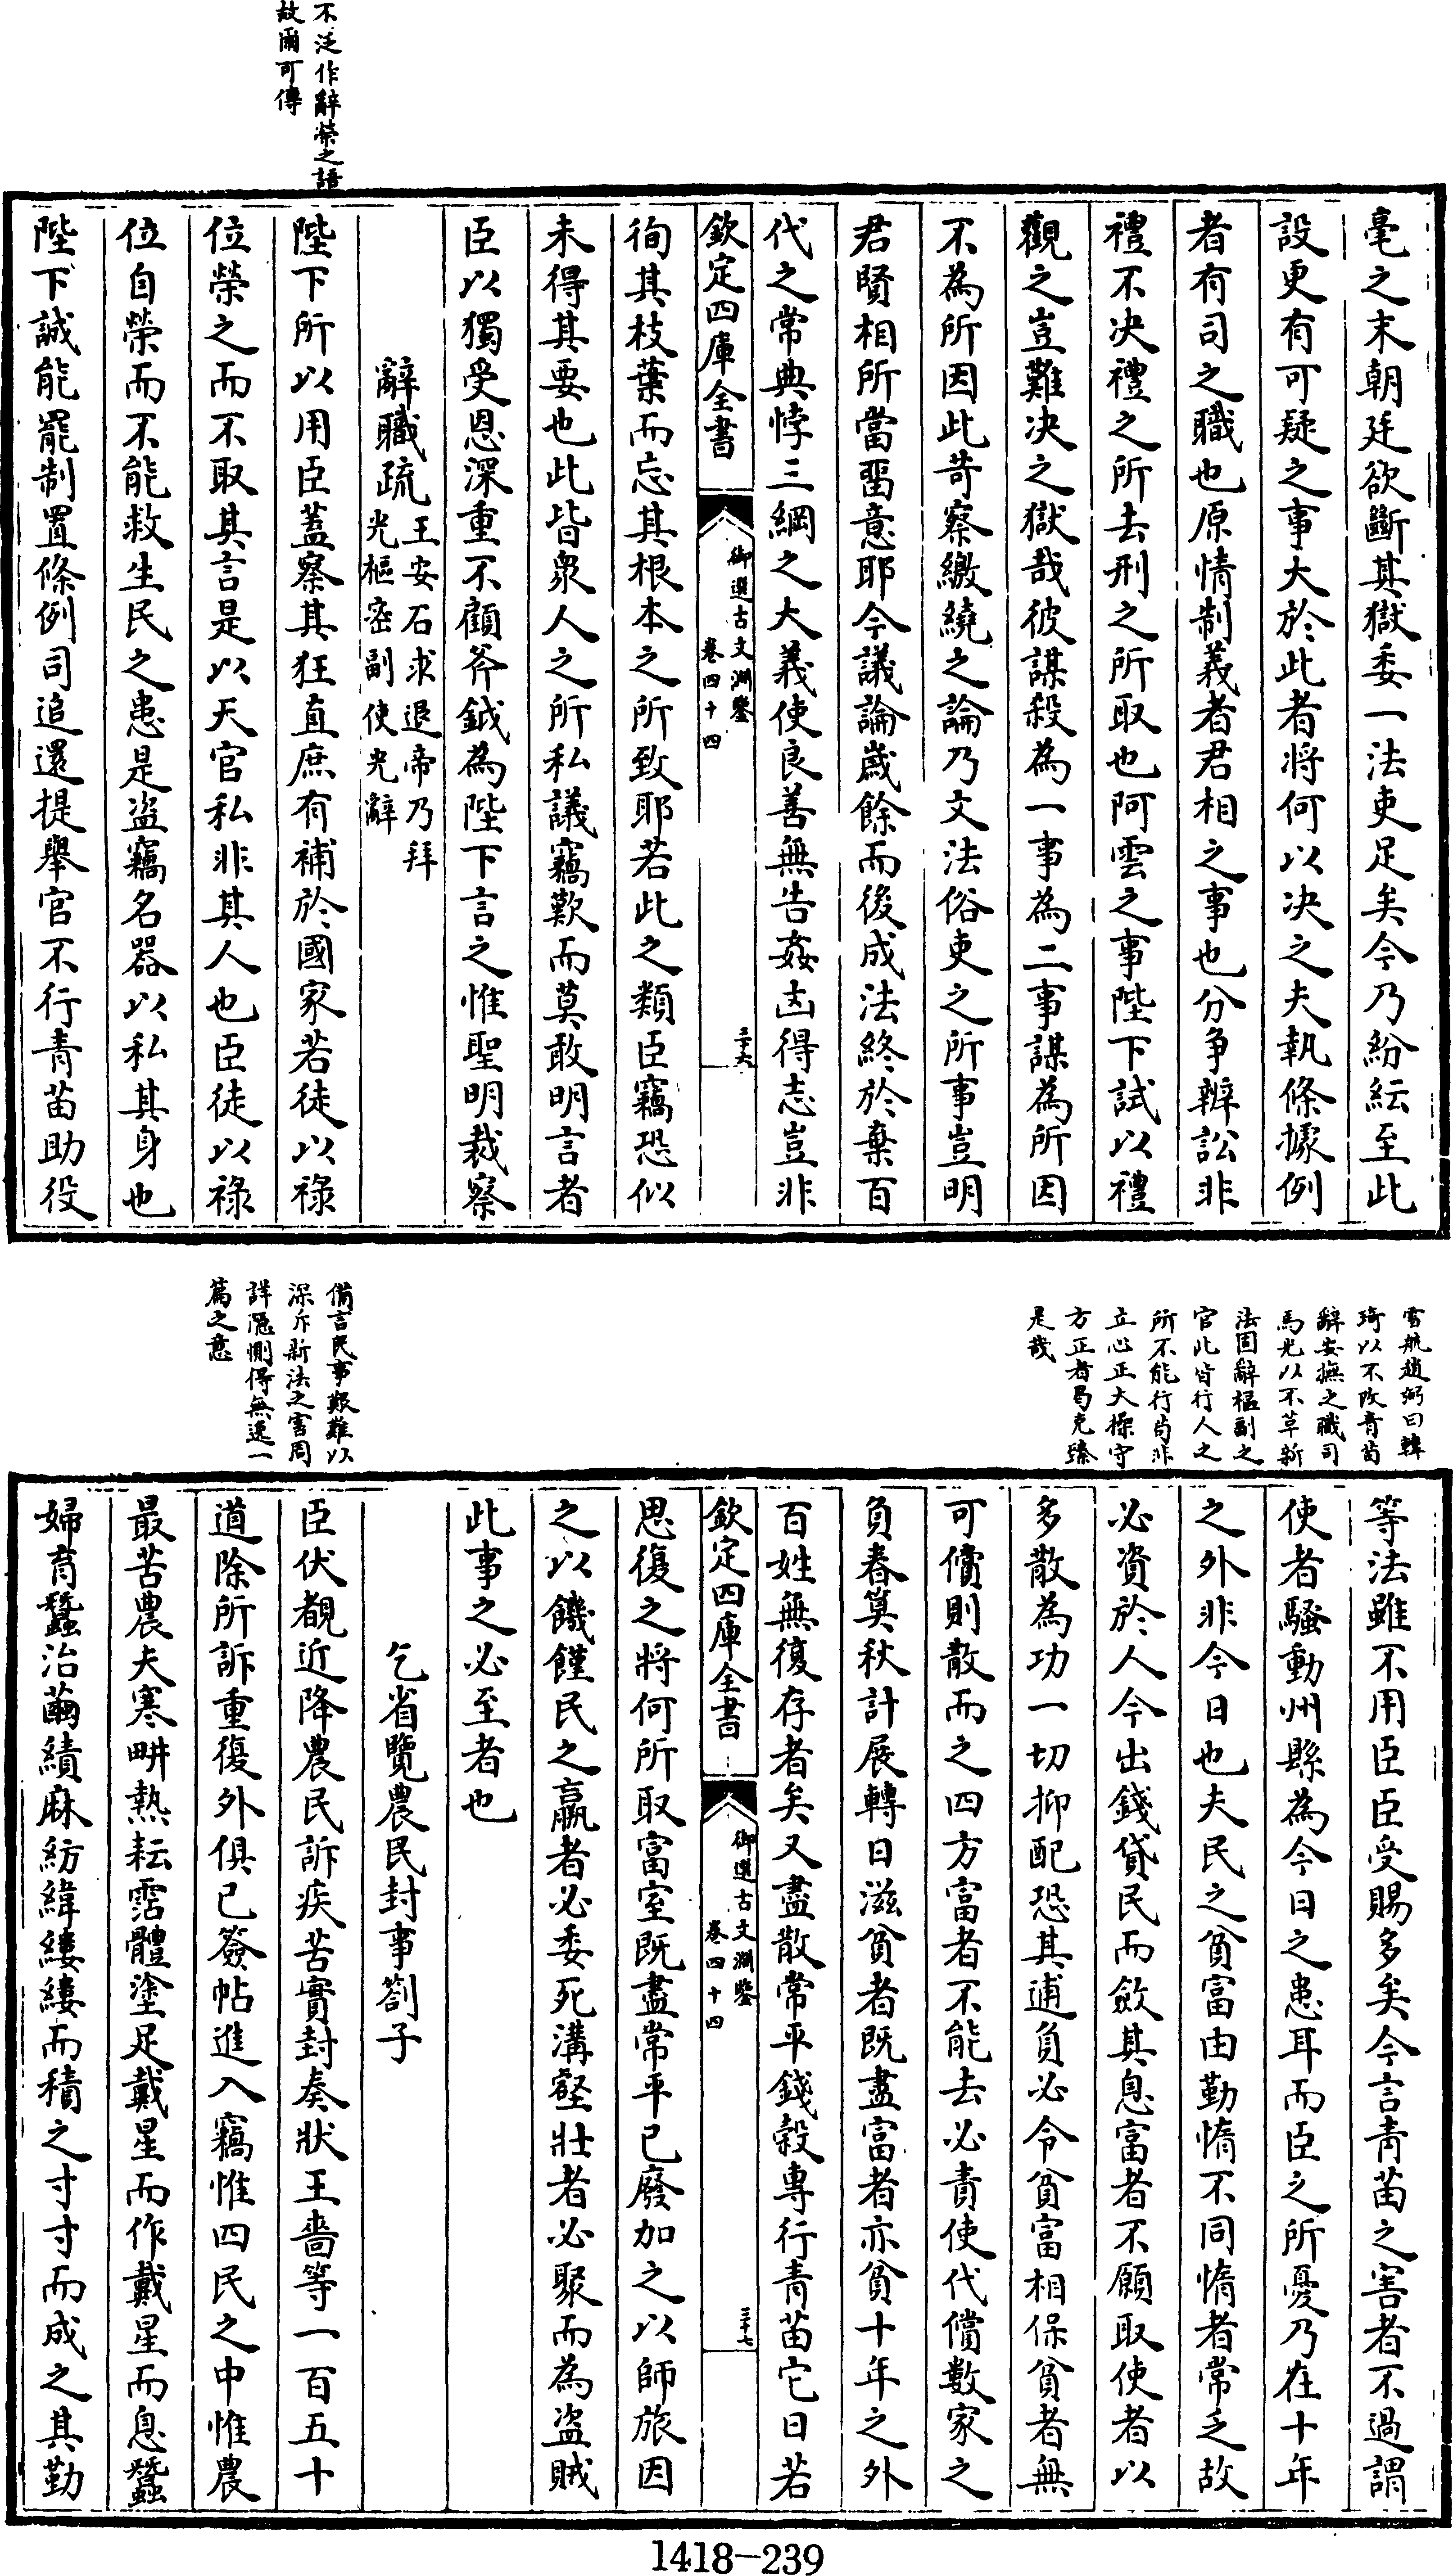 不泛作辭榮之語
故爾可傳
毫之末朝廷欲斷其獄委一法吏足矣今乃紛紜至此
設更有可疑之事大於此者將何以决之夫執條據例
者有司之職也原情制義者君相之事也分争辨訟非
禮不决禮之所去刑之所取也阿雲之事陛下試以禮
觀之豈難决之獄哉彼謀殺為一事為二事謀為所因
不為所因此苛察繳繞之論乃文法俗吏之所事豈明
君賢相所當畱意耶今議論歲餘而後成法終於棄百
代之常典悖三綱之大義使良善無告姦凶得志豈非
欽定四庫全書
御選古文淵鑒
卷四十四
三十六
徇其枝葉而忘其根本之所致耶若此之類臣竊恐似
未得其要也此皆衆人之所私議竊歎而莫敢明言者
臣以獨受恩深重不顧斧鉞為陛下言之惟聖明裁察
辭職疏
王安石求退帝乃拜
光樞密副使光辭
陛下所以用臣蓋察其狂直庶有補於國家若徒以祿
位榮之而不取其言是以天官私非其人也臣徒以祿
位自榮而不能救生民之患是盗竊名器以私其身也
陛下誠能罷制置條例司追還提舉官不行青苗助役
雪航趙弼曰韓
琦以不改青苗
辭安撫之職司
馬光以不革新
法固辭樞副之
官此皆行人之
所不能行尚非
立心正大操守
方正者曷克臻
是哉
備言民事艱難以
深斥新法之害周
詳隱惻得無逸一
篇之意
等法雖不用臣臣受賜多矣今言青苗之害者不過謂
使者騷動州縣為今日之患耳而臣之所憂乃在十年
之外非今日也夫民之貧富由勤惰不同惰者常乏故
必資於人今出錢貸民而斂其息富者不願取使者以
多散為功一切抑配恐其逋負必令貧富相保貧者無
可償則散而之四方富者不能去必責使代償數家之
負春算秋計展轉日滋貧者既盡富者亦貧十年之外
百姓無復存者矣又盡散常平錢穀專行青苗它日若
欽定四庫全書
御選古文淵鑒
卷四十四
三十七
思復之將何所取富室既盡常平已廢加之以師旅因
之以饑饉民之羸者必委死溝壑壯者必聚而為盗賊
此事之必至者也
乞省覽農民封事劄子
臣伏覩近降農民訴疾苦實封奏狀王嗇等一百五十
道除所訴重復外俱已簽帖進入竊惟四民之中惟農
最苦農夫寒畊熱耘霑體塗足戴星而作戴星而息蠶
婦育蠶治繭績麻紡緯縷縷而積之寸寸而成之其勤
1418-239